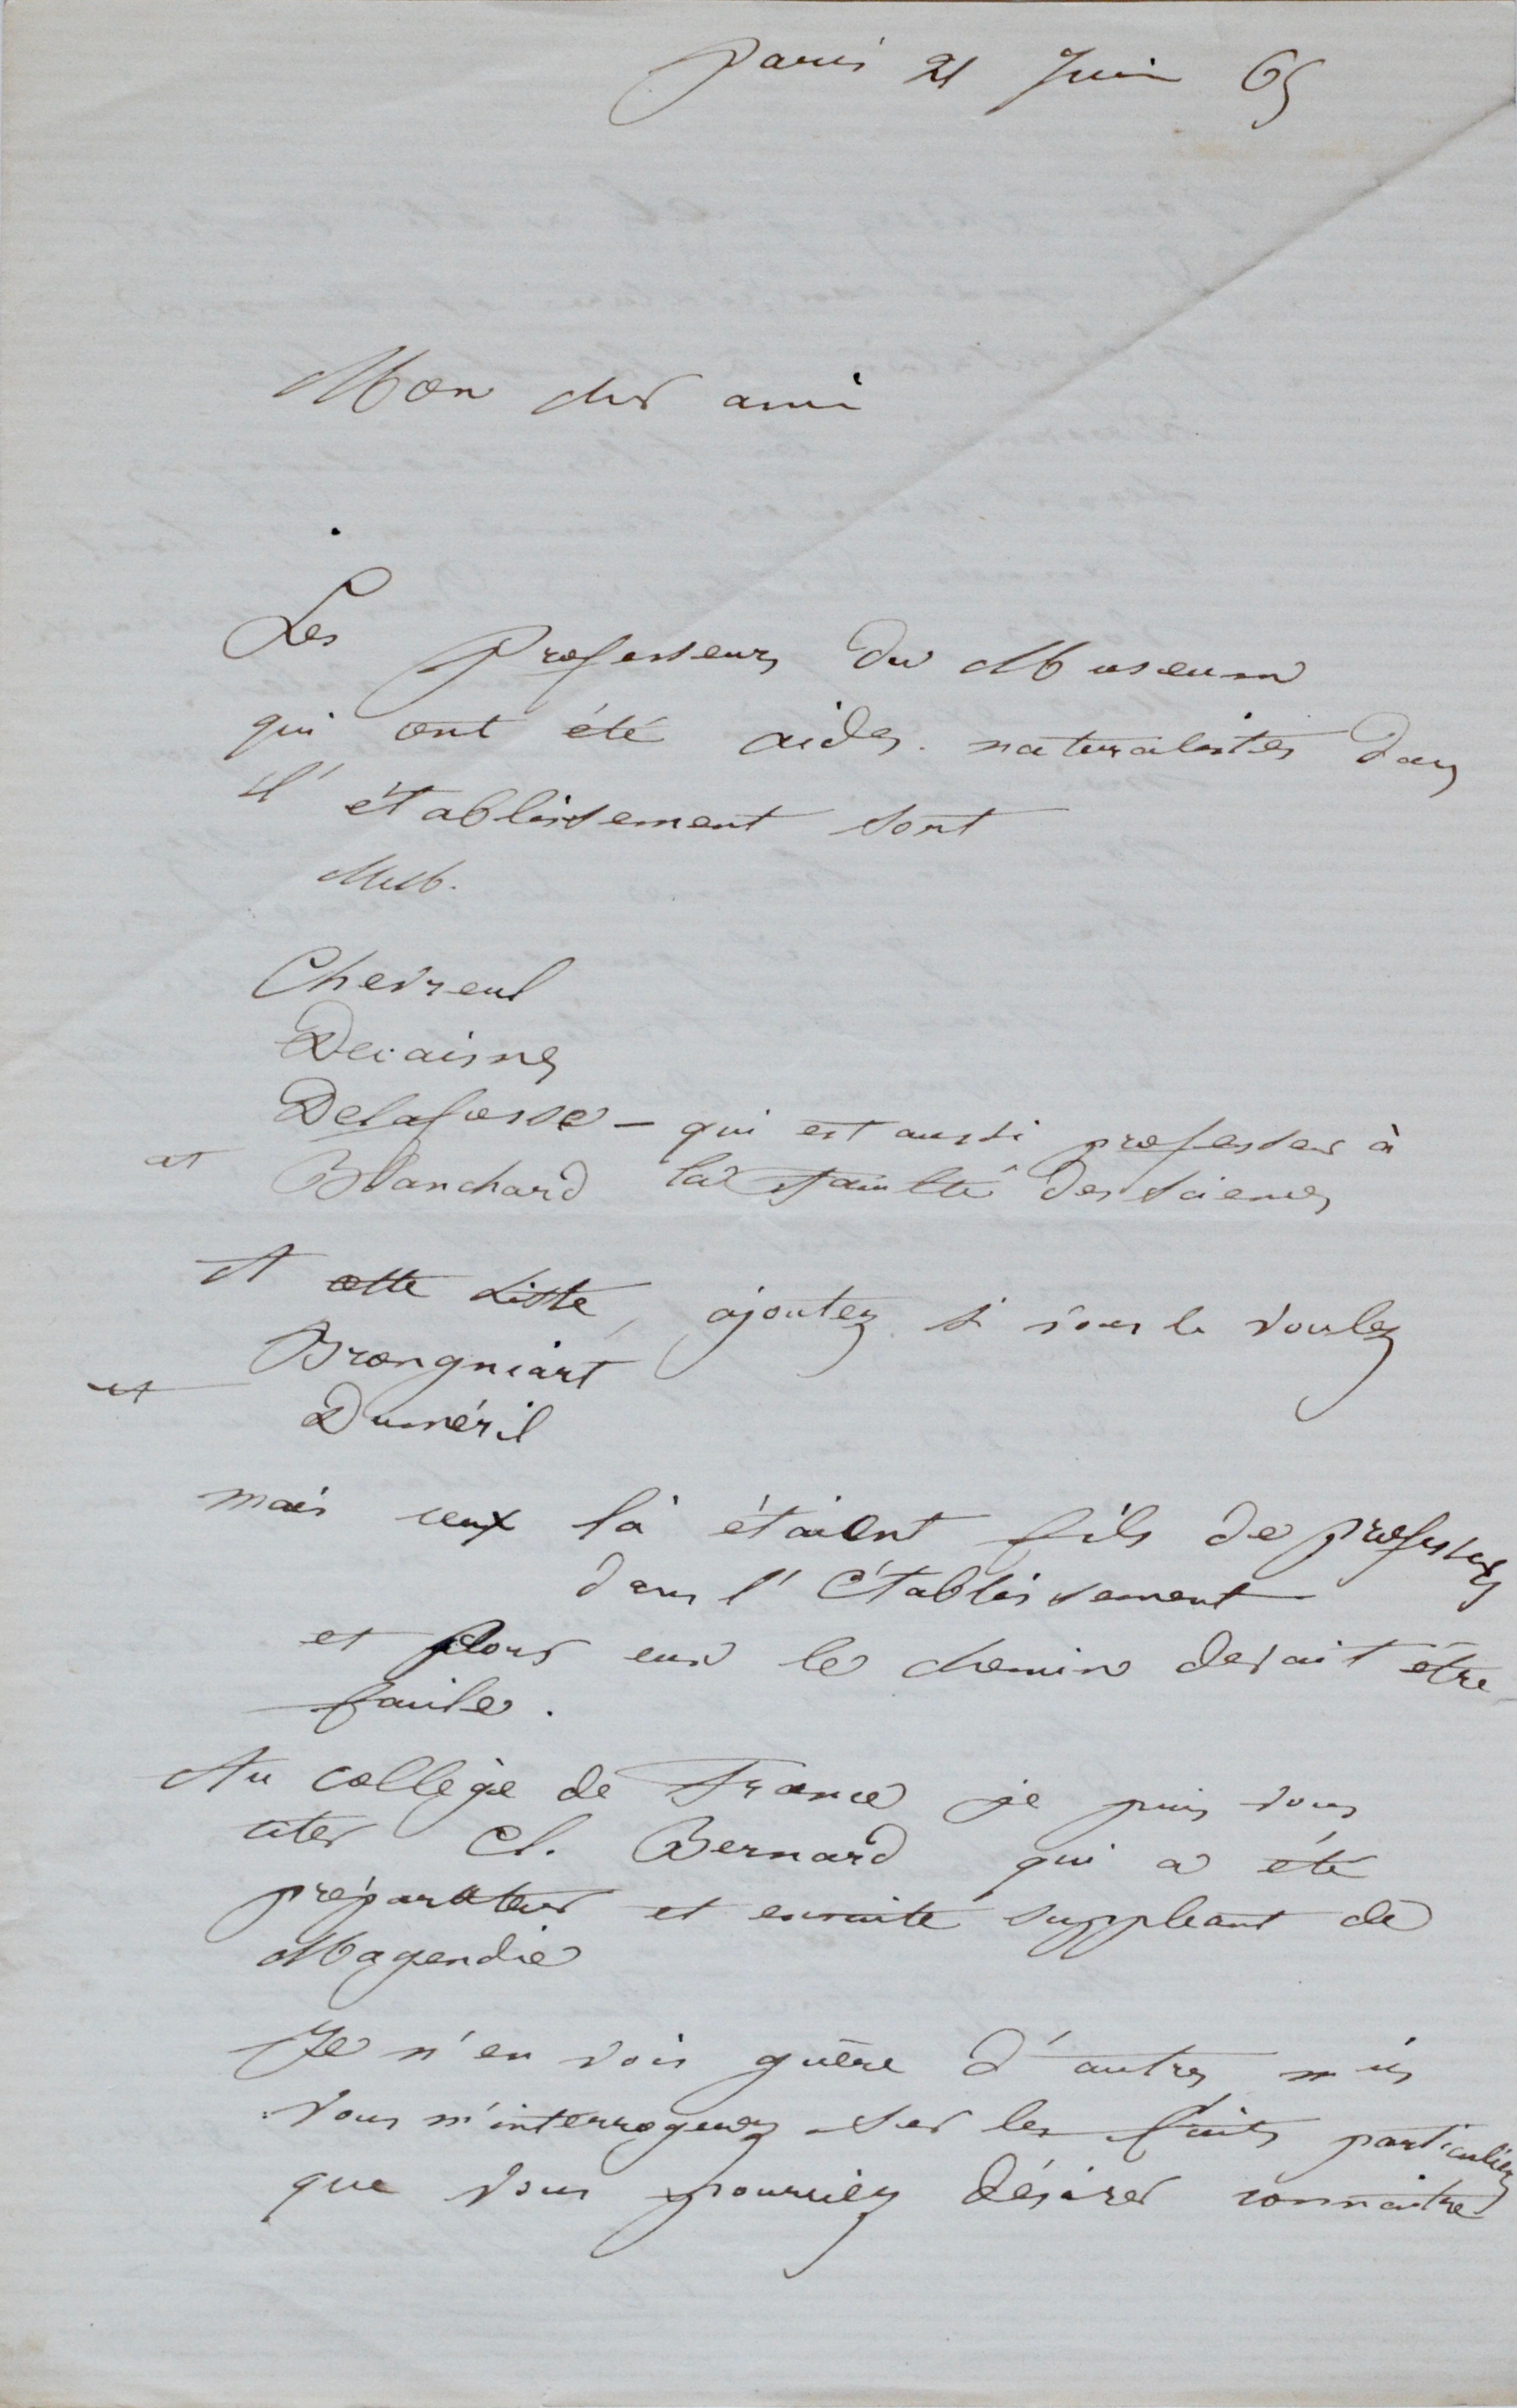 Paris 21 Juin 65
Mon cher ami
Les Professeurs du Museum
qui ont été aides-naturalistes dans
l'établissement sont
MM.
Chevreul
Decaisne
Delafosse – qui est aussi professeur à
et Blanchard la faculté des sciences
A cette liste, ajoutez si vous le voulez
Brongniart
et Duméril
mais ceux là étaient fils de professeurs
dans l'établissement
et pour eux le chemin devait être
facile.
Au collège de France je puis vous
citer Cl. Bernard qui a été
préparateur et ensuite suppléant de
Magendie
Je n'en vois guère d'autres
vous m'interrogerez sur les faits particuliers
que vous pourriez désirer connaitre